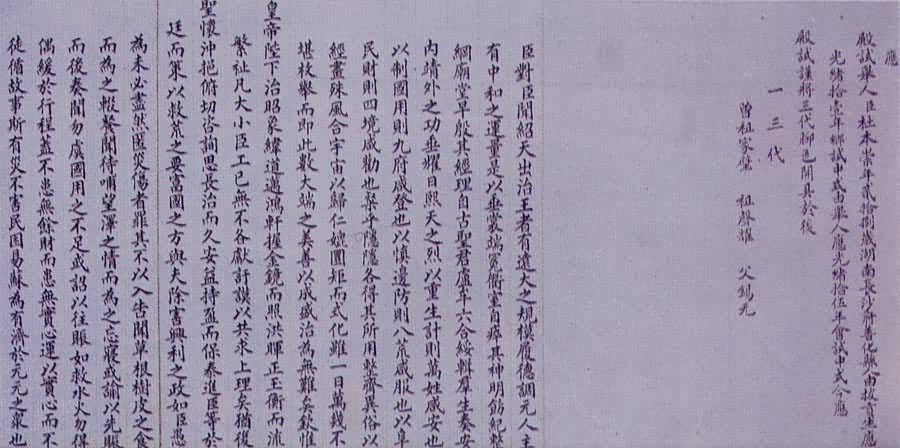 應
殿試舉人臣杜本崇年貳拾捌歲湖南長沙府善化縣人由拔貢生應
光緒拾壹年鄉試中式由舉人應光緒拾伍年會試中式今應
殿試謹將三代腳色開具於後
一三代
曾祖家 祖聲耀 父錫元
臣對臣聞紹天出治王者有遠大之規模履德調元人主
有中和之運量是以垂裳端冕衡室自瘁其神明飭紀整
綱廟堂早殷其經理自古聖君慮革六合綏輯羣生奏安
內靖外之功垂耀日熙天之烈以重生計則萬姓咸安也
以制國用則九府咸登也以慎邊防則八荒咸服也以阜
民財則四境咸勸也粲乎隱隱各得其所用整齊異俗以
經畫殊風合宇宙以歸仁矩而式化雖一日萬錢不
堪枚舉而即此數大端之美善以成盛治為無難矣欽惟
皇帝陛下治昭象緯道邁鴻軒握金鏡而照洪暉正玉衡而流
繁祉凡大小臣工已無不各獻訏謨以共求上理矣猶復
聖懷沖挹俯切咨詢思長治而久安益持盈而保泰進臣等於
廷而策以救荒之要富國之方與夫除害興利之政如臣愚
為未必盡然匿災傷者罪其不以入告聞草根樹皮之食
而為之輟餐聞待哺望澤之情而為之忘寢或諭以先賑
而後奏聞勿虞國用之不足或詔以往賑如救水火勿得
偶緩於行程蓋不患無餘財而患無實心運以實心而不
徒循故事斯有災不害民困易蘇為有濟於元元之眾也